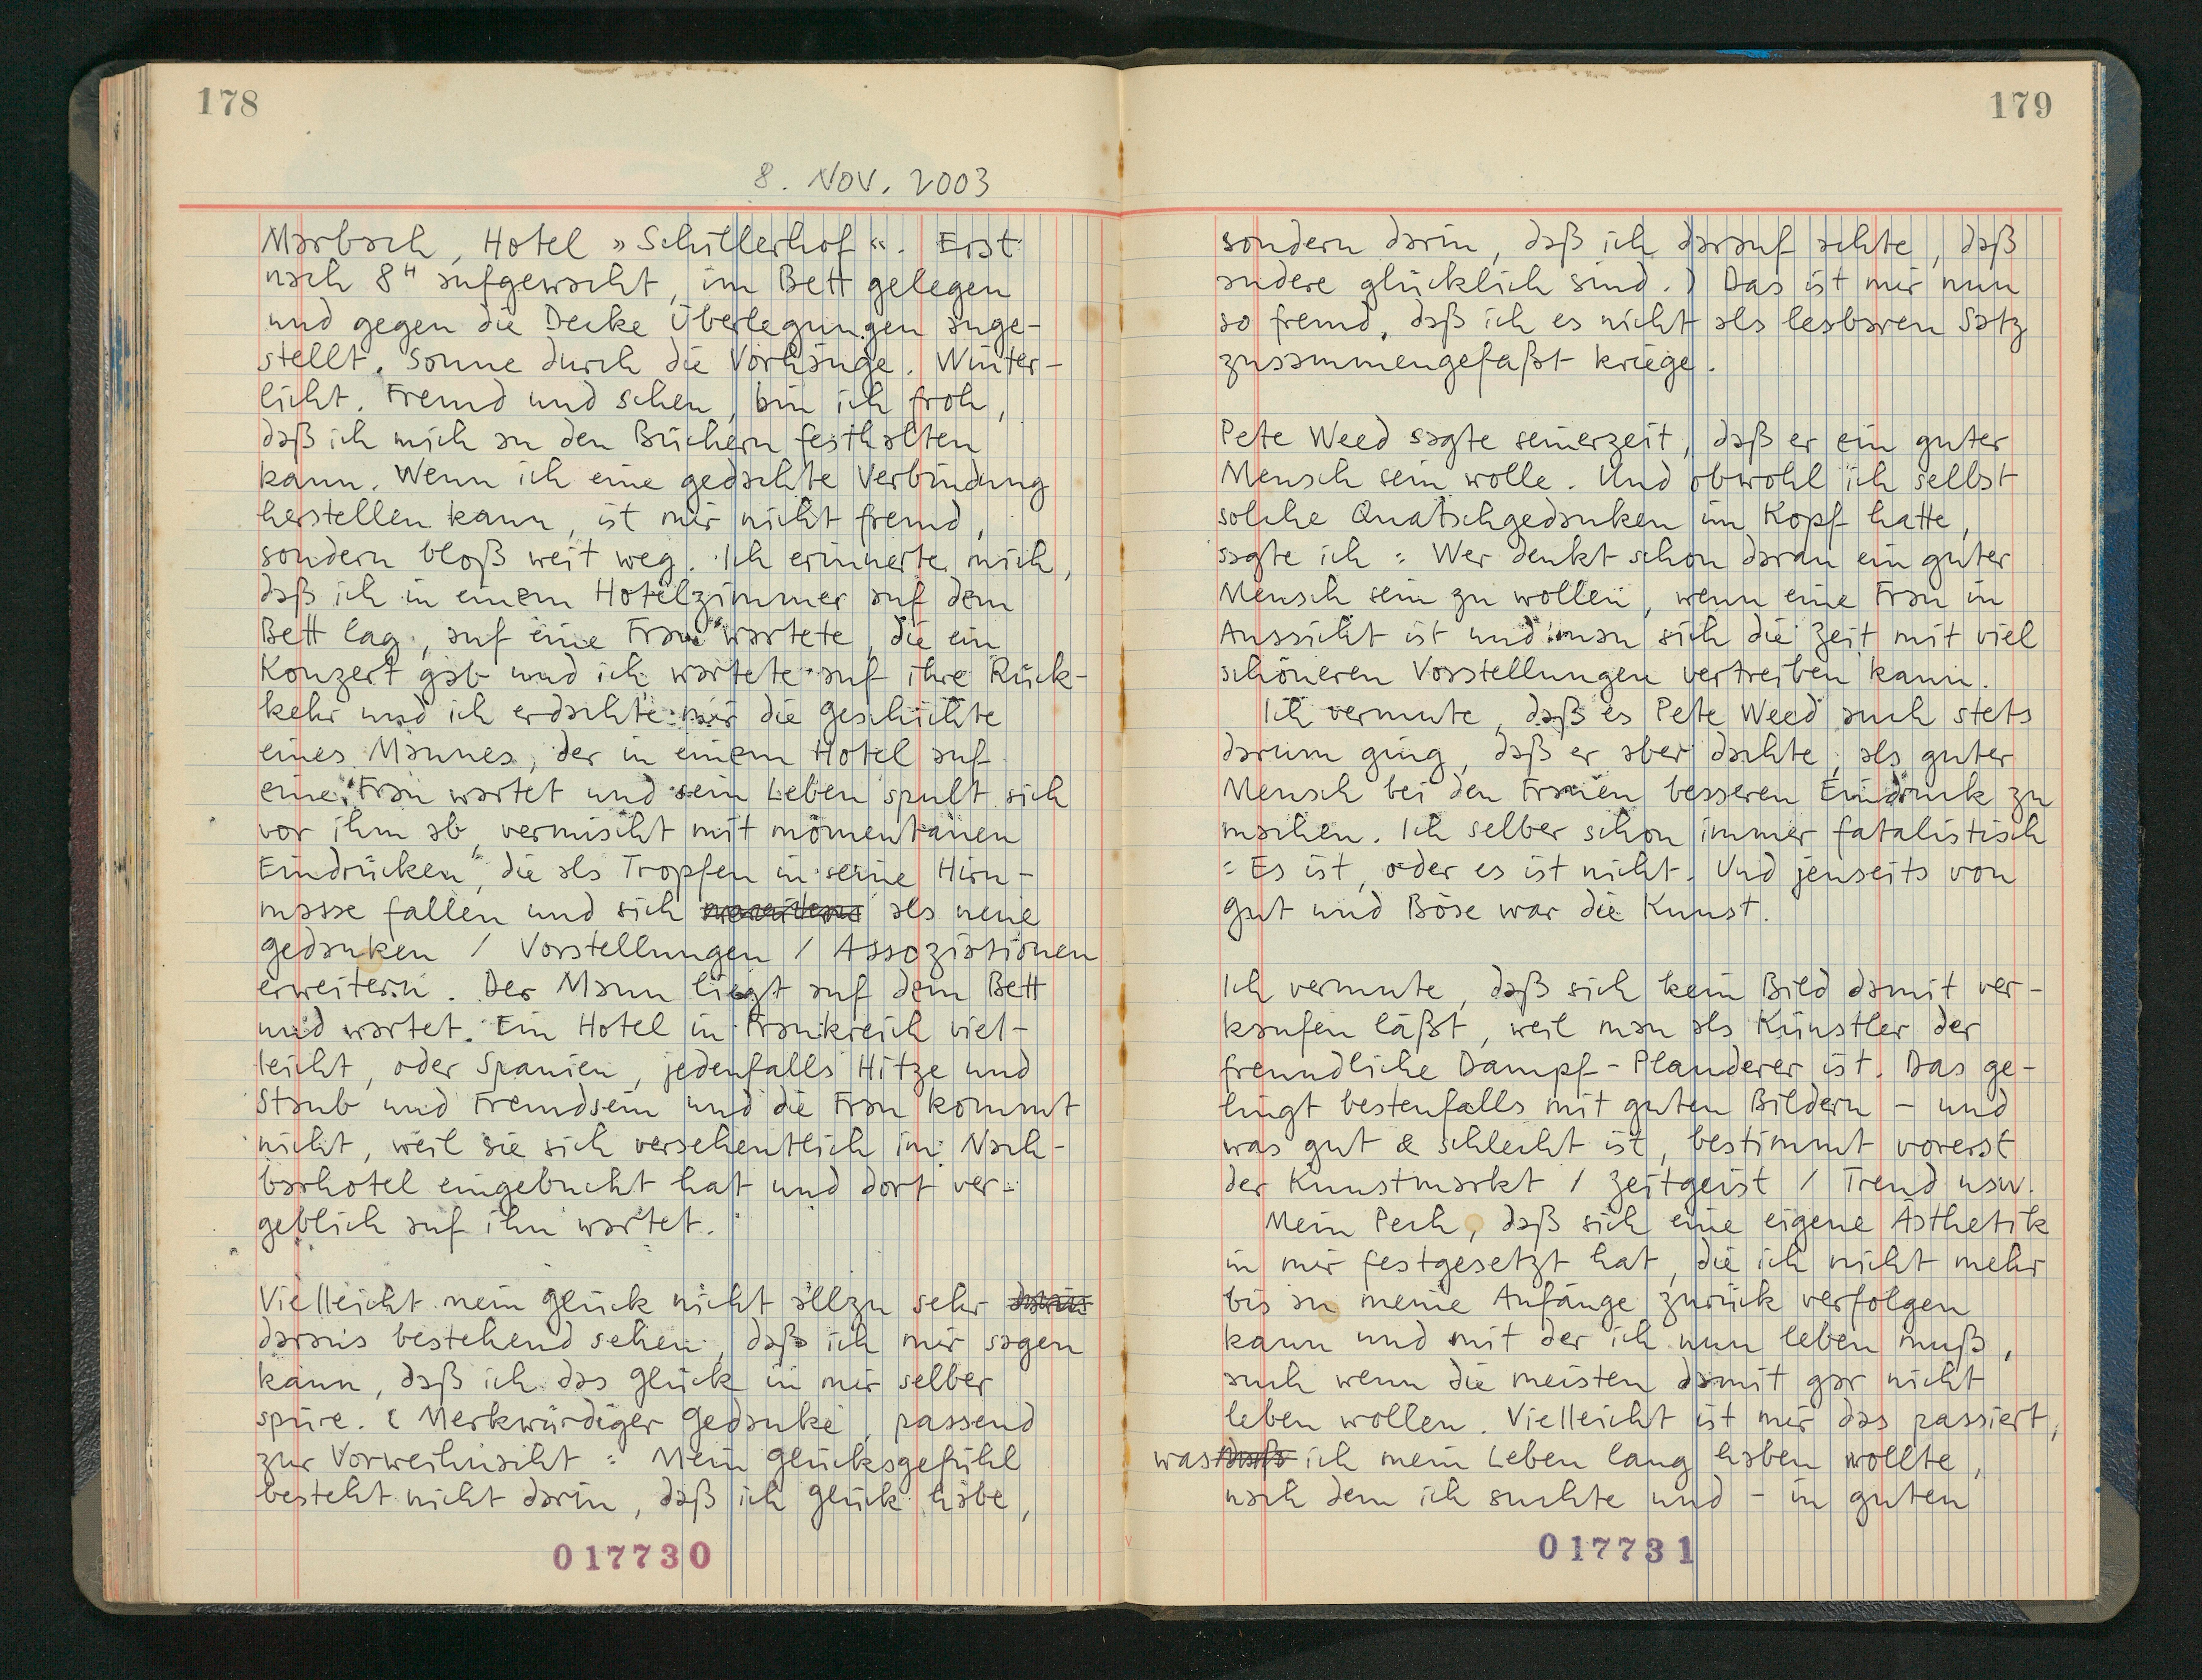 178
8. NOV. 2003
Marbach, Hotel »Schillerhof«. Erst
nach 8H aufgewacht, im Bett gelegen
und gegen die Decke Überlegungen ange-
stellt. Sonne durch die Vorhänge. Winter-
licht. Fremd und scheu, bin ich froh,
daß ich mich an den Büchern festhalten
kann. Wenn ich eine gedachte Verbindung
herstellen kann, ist mir nicht fremd,
sondern bloß weit weg. Ich erinnerte mich,
daß ich in einem Hotelzimmer auf dem
Bett lag, auf eine Frau wartete, die ein
Konzert gab und ich wartete auf ihre Rück-
kehr und ich erdachte mir die Geschichte
eines Mannes, der in einem Hotel auf
eine Frau wartet und sein Leben spult sich
vor ihm ab, vermischt mit momentanen
Eindrücken, die als Tropfen in seine Hirn-
masse fallen und sich als neue
Gedanken / Vorstellungen / Assoziationen
erweitern. Der Mann liegt auf dem Bett
und wartet. Ein Hotel in Frankreich viel-
leicht, oder Spanien, jedenfalls Hitze und
Staub und Fremdsein und die Frau kommt
nicht, weil sie sich versehentlich im Nach-
barhotel eingebucht hat und dort ver-
geblich auf ihn wartet.
Vielleicht mein Glück nicht allzu sehr
daraus bestehend sehen, daß ich mir sagen
kann, daß ich das Glück in mir selber
spüre. (Merkwürdiger Gedanke, passend
zur Vorweihnacht: Mein Glücksgefühl
besteht nicht darin, daß ich Glück habe,
017730
179
sondern darin, daß ich darauf achte, daß
andere glücklich sind.) Das ist mir nun
so fremd, daß ich es nicht als lesbaren Satz
zusammengefaßt kriege.
Pete Weed sagte seinerzeit, daß er ein guter
Mensch sein wolle. Und obwohl ich selbst
solche Quatschgedanken im Kopf hatte,
sagte ich: Wer denkt schon daran ein guter
Mensch sein zu wollen, wenn eine Frau in
Aussicht ist und man sich die Zeit mit viel
schöneren Vorstellungen vertreiben kann.
Ich vermute, daß es Pete Weed auch stets
darum ging, daß er aber dachte, als guter
Mensch bei den Frauen besseren Eindruck zu
machen. Ich selber schon immer fatalistisch
: Es ist, oder es ist nicht. Und jenseits von
Gut und Böse war die Kunst.
Ich vermute, daß sich kein Bild damit ver-
kaufen läßt, weil man als Künstler der
freundliche Dampf-Plauderer ist. Das ge-
lingt bestenfalls mit guten Bildern – und
was gut & schlecht ist, bestimmt vorerst
der Kunstmarkt / Zeitgeist / Trend usw.
Mein Pech, daß sich eine eigene Ästhetik
in mir festgesetzt hat, die ich nicht mehr
bis an meine Anfänge zurück verfolgen
kann und mit der ich nun leben muß,
auch wenn die meisten damit gar nicht
leben wollen. Vielleicht ist mir das passiert,
was ~~daß~~ ich mein Leben lang haben wollte,
nach dem ich suchte und – in guten
017731